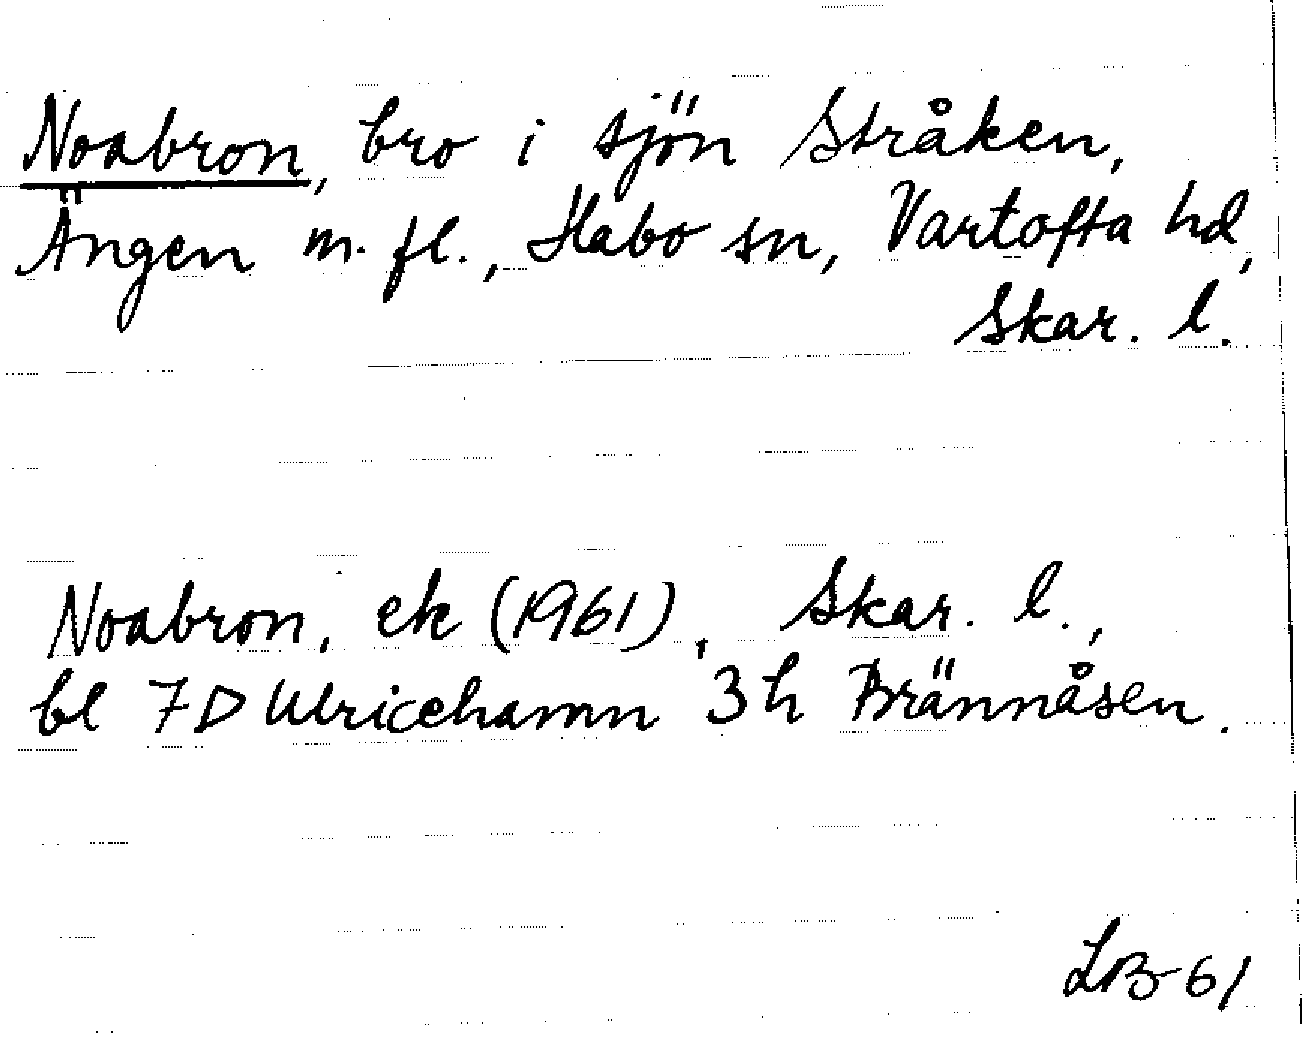 Noabron, bro i sjön Stråken,
Ängen m. fl., Habo sn, Vartofta hd,
Skar. l.
Noabron, ek (1961), Skar. l.,
bl 7D Ulricehamn 3h Brännåsen.
LB-61